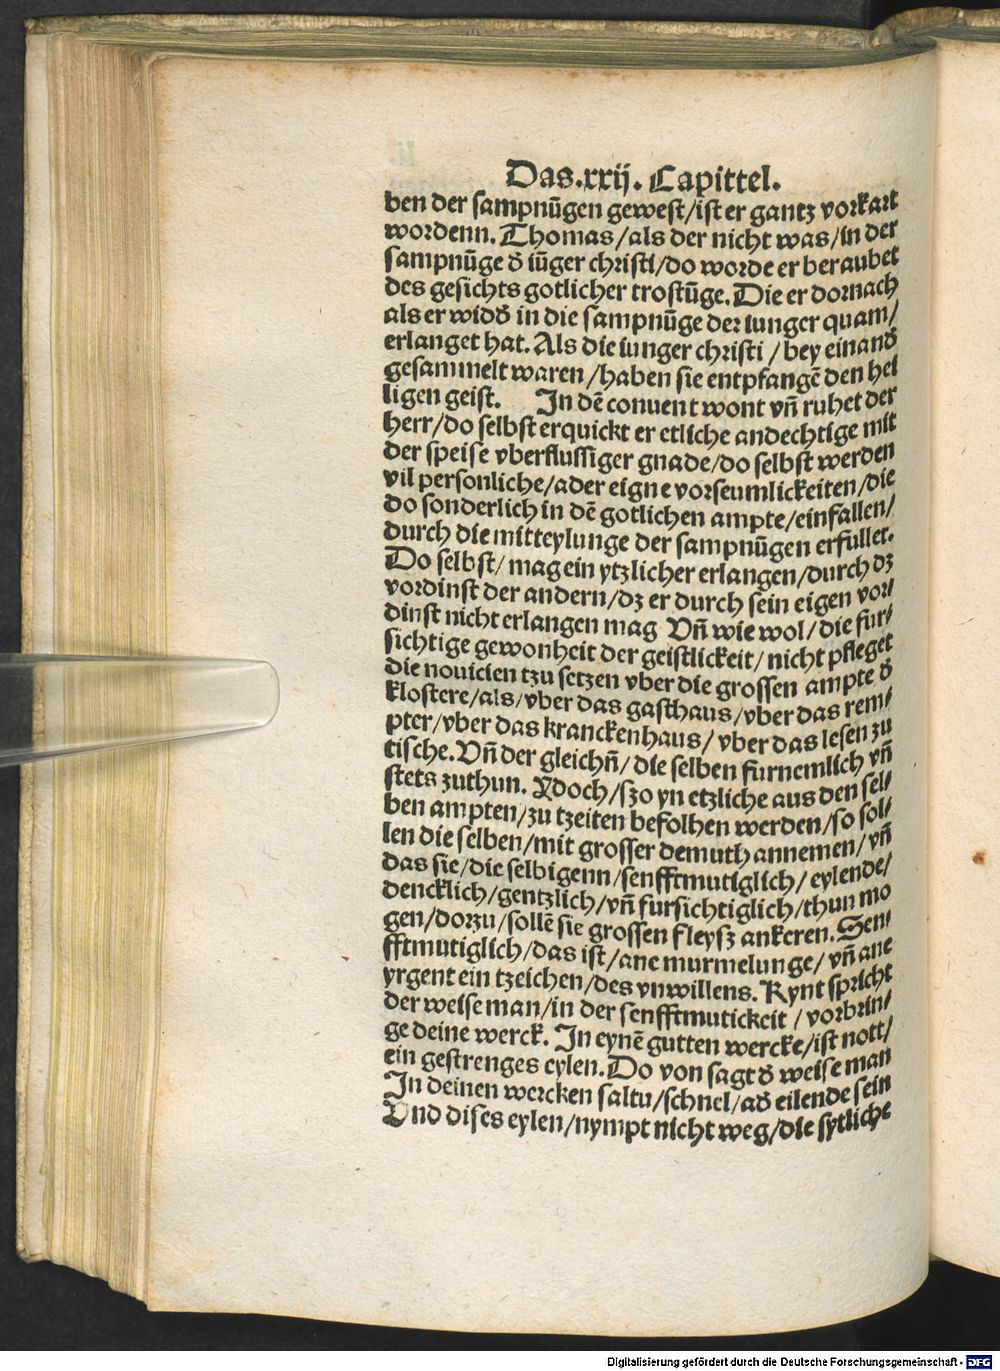 Das.xxij. Capittel.
ben der sampnūgen gewest/ist er gantz vorkart
wordenn. Thomas/als der nicht was/in der
sampnūge đ iūger christi/do worde er beraubet
des gesichts gotlicher trostūge. Die er dornach
als er widđ in die sampnūge der iunger quam/
erlanget hat. Als die iunger christi/bey einanđ
gesammelt waren/haben sie entpfangē den hei
ligen geist. In dē conuent wont vñ ruhet der
herr/do selbst erquickt er etliche andechtige mit
der speise vberflussiger gnade/do selbst werden
vil personliche/ader eigne vorseumlickeiten/die
do sonderlich in dē gotlichen ampte/einfallen/
durch die mitteylunge der sampnūgen erfullet.
Do selbst/mag ein ytzlicher erlangen/durch dz
vordinst der andern/dz er durch sein eigen vor/
dinst nicht erlangen mag Vñ wie wol/die fur/
sichtige gewonheit der geistlickeit/nicht pfleget
die nouicien tzu setzen vber die grossen ampte đ
klostere/als/vber das gasthaus/vber das rem/
pter/vber das kranckenhaus/vber das lesen zu
tische. Vñ der gleichñ/die selben furnemlich vñ
stets zuthun. Ydoch/szo yn etzliche aus den sel/
ben ampten/zu tzeiten befolhen werden/so sol/
len die selben/mit grosser demuth annemen/vñ
das sie/die selbigenn/senfftmutiglich/eylende/
dencklich/gentzlich/vñ fursichtiglich/thun mo
gen/dorzu/sollē sie grossen fleysz ankeren. Sen/
fftmutiglich/das ist/ane murmelunge/vñ ane
yrgent ein tzeichen/des vnwillens. Kynt spricht
der weise man/in der senfftmutickeit/vorbrin/
ge deine werck. In eynē gutten wercke/ist nott/
ein gestrenges eylen. Do von sagt đ weise man
In deinen wercken saltu/schnel/ađ eilende sein
Vnd dises eylen/nympt nicht weg/die sytliche
Digitalisierung gefördert durch die Deutsche Forschungsgemeinschaft - DFG